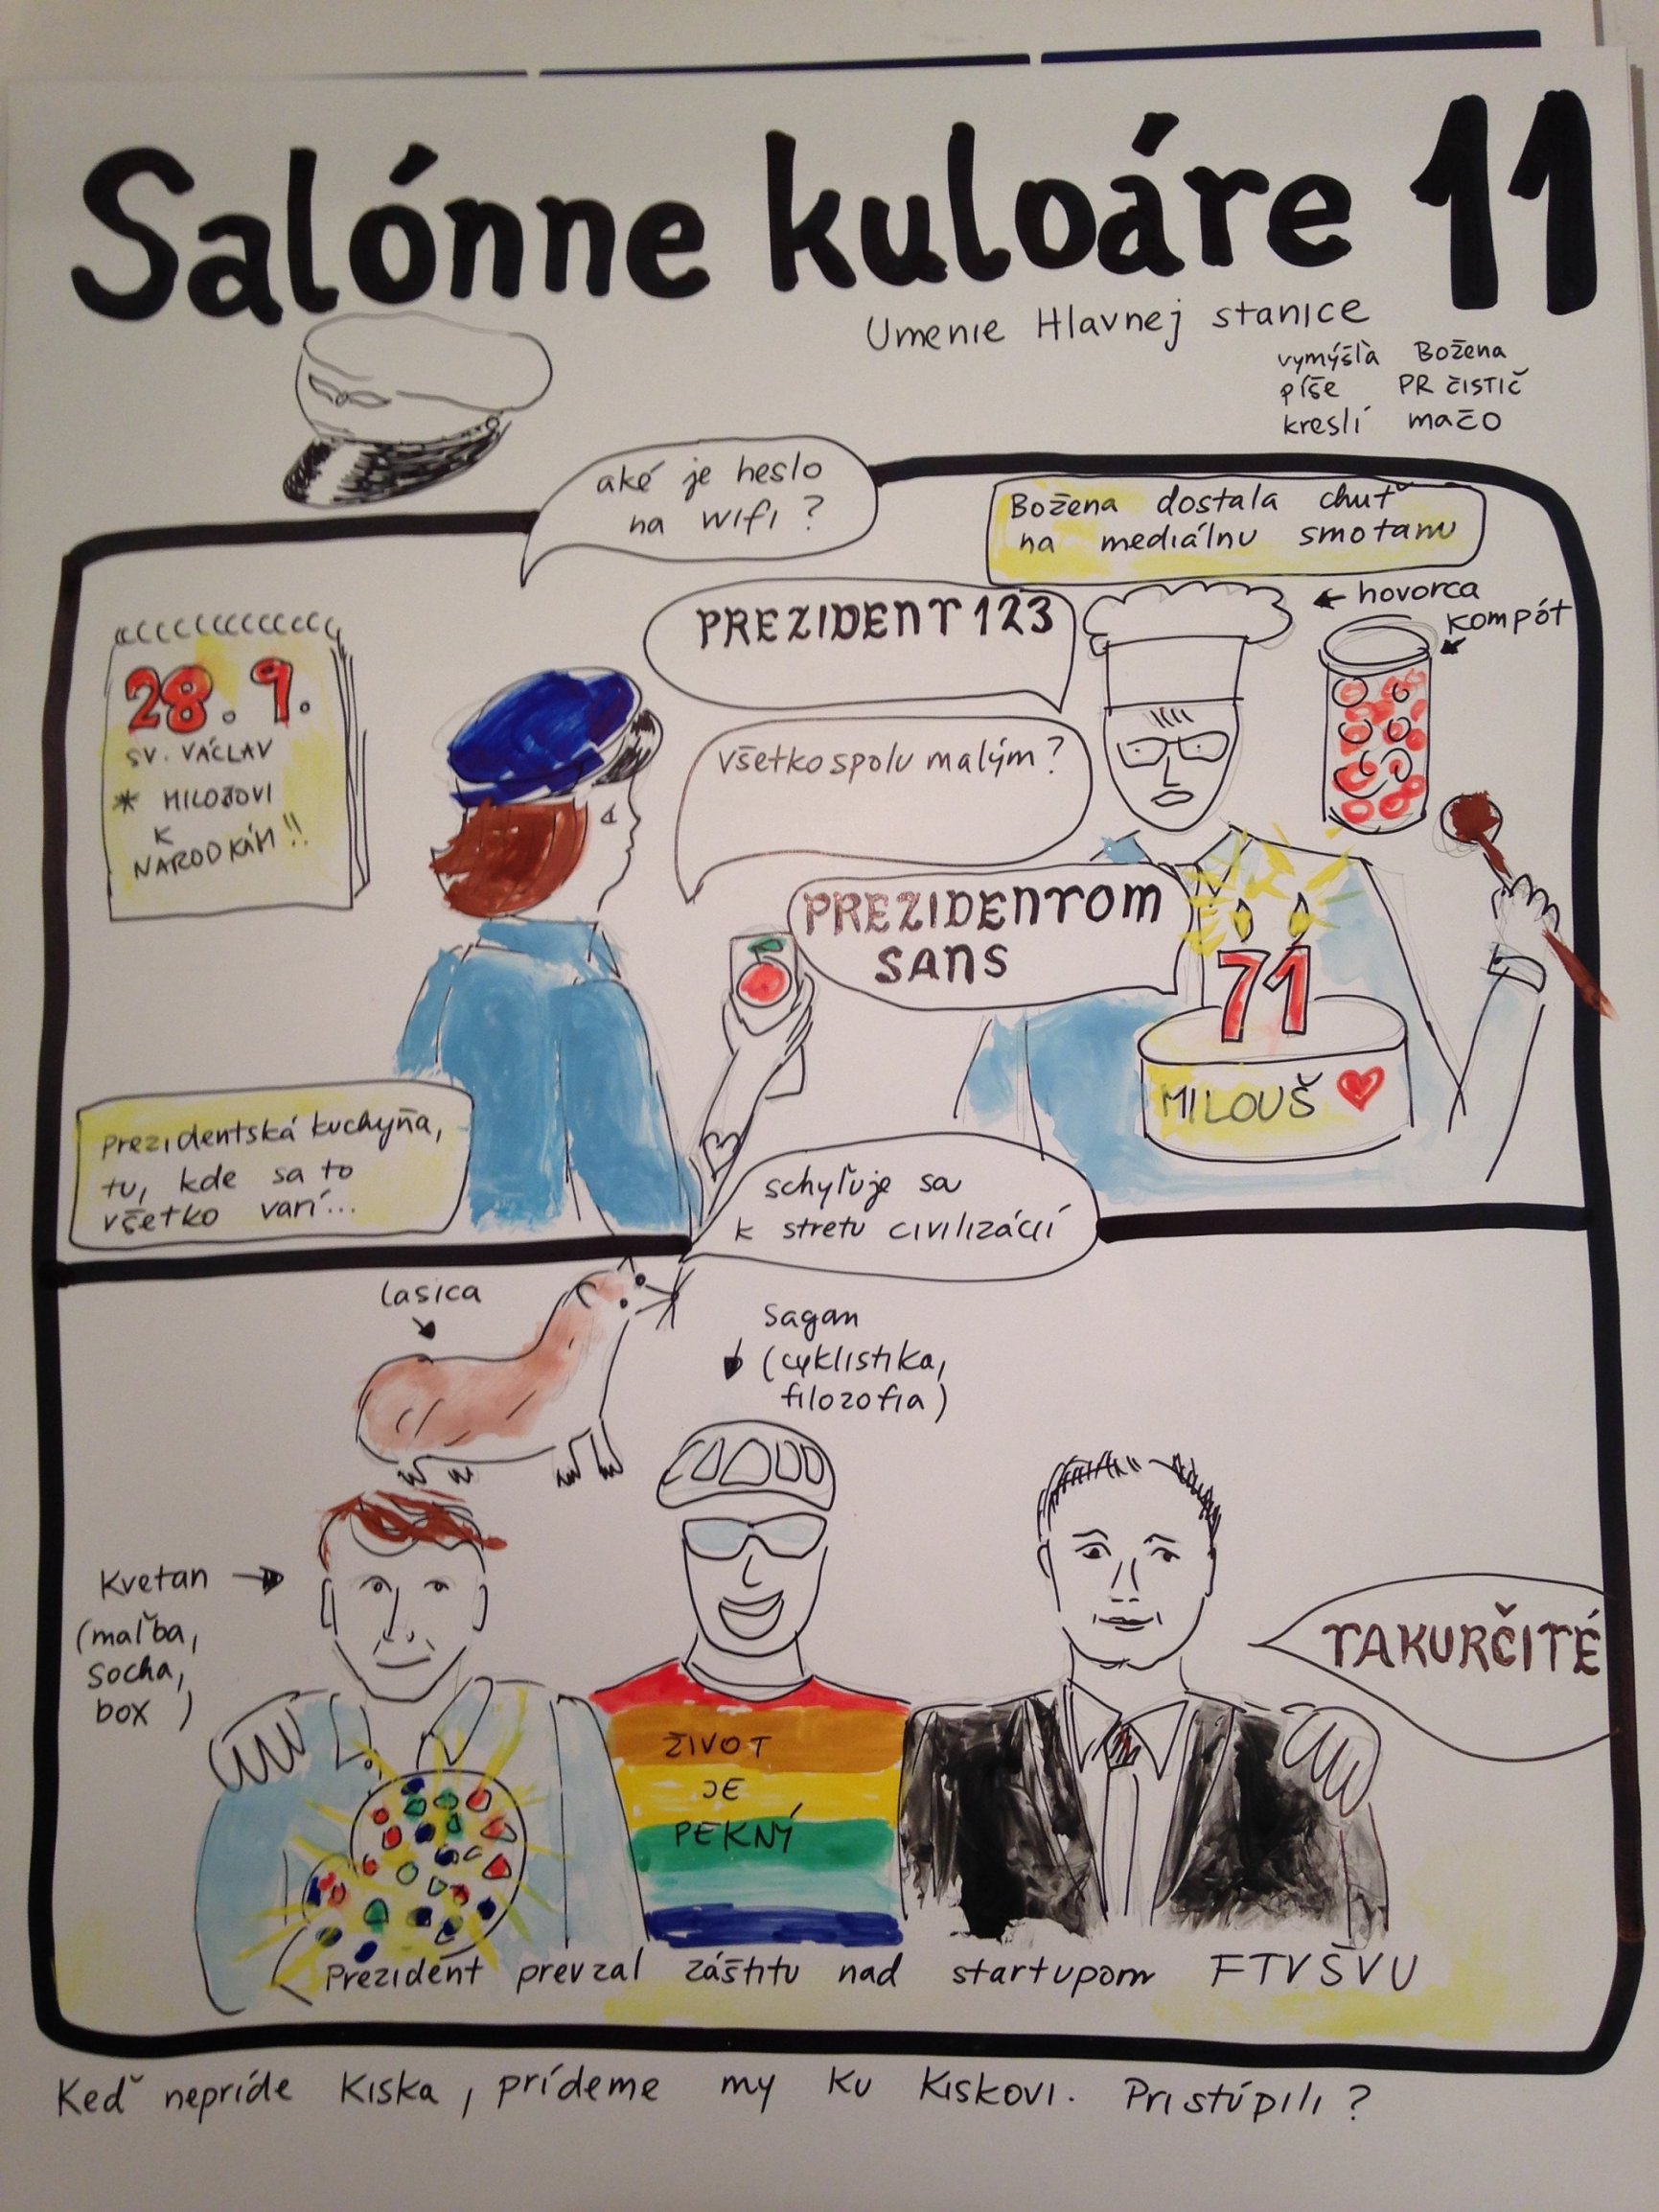 Salónne kuloáre 11
Umenie Hlavnej stanice
vymýšľa Božena
píše PR čistič
kreslí mačo
aké je heslo
na wifi?
Božena dostala chuť
na mediálnu smotanu
PREZIDENT 123
← hovorca
kompót
28. 9.
SV. VÁCLAV
* MILOŠOVI
K
NARODKÁM!!
všetko spolu malým?
PREZIDENTOM
SANS
71
MILOUŠ
prezidentská kuchyňa,
tu, kde sa to
všetko varí...
schyľuje sa
k stretu civilizácií
lasica
Sagan
(cyklistika,
filozofia)
Kvetan
(maľba,
socha,
box)
TAKURČITÉ
ŽIVOT
JE
PEKNÝ
Prezident prevzal záštitu nad startupom FTVŠVU
Keď nepríde Kiska, prídeme my ku Kiskovi. Pristúpili?